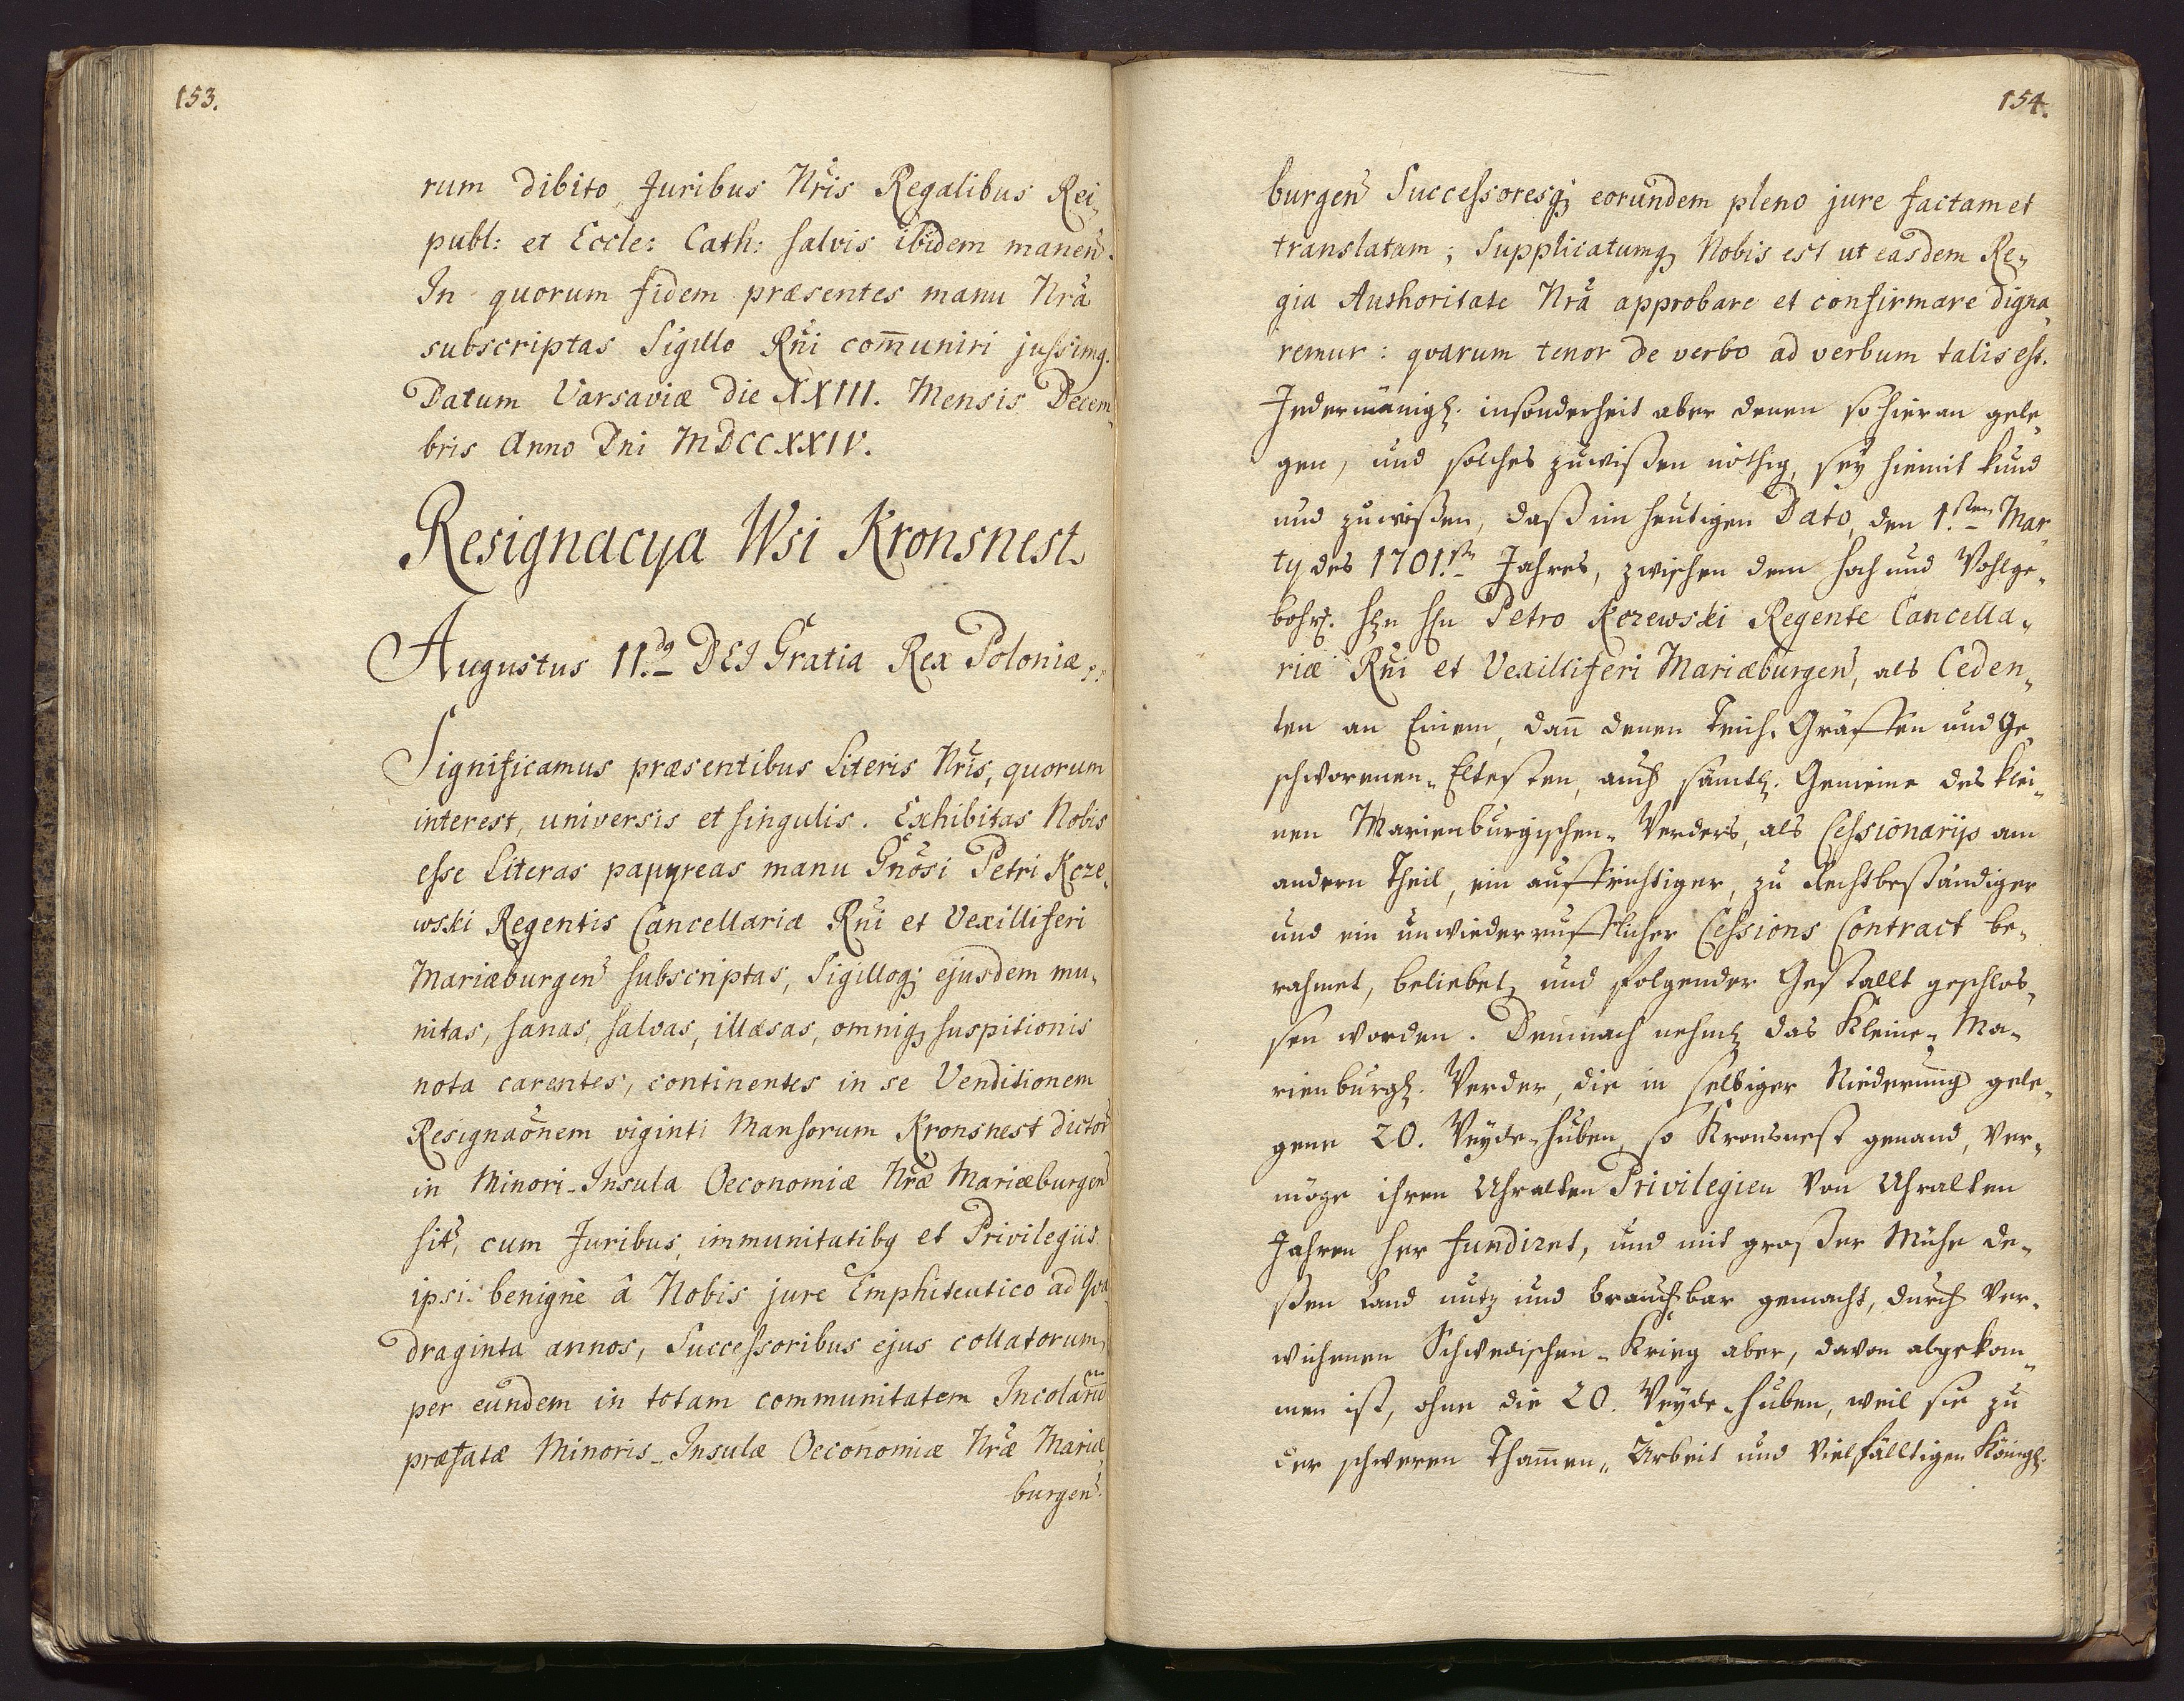 153.
rum dibito, Juribus Nris Regalibus Rei,
publ: et Eccle: Cath: salvis ibidem manen.
In quorum fidem præsentes manu Nra
subscriptas Sigillo Rni com̄uniri jussimq.
Datum Varsaviæ die XXIII. Mensis Decem,
bris Anno Dni MDCCXXIV.
Resignacya Wsi Kronsnest.
Augustus II.dq DEI Gratia Rex Poloniæ,,
Significamus præsentibus Literis Nris, quorum
interest, universis et singulis. Exhibitas Nobis
esse Literas papyreas manu Gnosi Petri Kcze,
wski Regentis Cancellariæ Rni et Vexilliferi
Mariæburgen subscriptas, Sigilloq; ejusdem mu,
nitas, sanas, salvas, illæsas, omniq; suspitionis
nota carentes, continentes in se Venditionem
Resignaonem viginti Mansorum Kronsnest dictor
in Minori-Insula Oeconomiæ Nræ Mariæburgen
sit, cum Juribus, immunitatibq et Privilegiis
ipsi benignè â Nobis jure Emphiteutico ad qva,
draginta annos, Successoribus ejus collatorum,
per eundem in totam communitatem Incolarū
præfatæ Minoris-Insulæ Oeconomiæ Nræ Mariæ,
burgen.
154.
burgen Successoresq; eorundem pleno jure factam et
translatam; Supplicatumq; Nobis est ut easdem Re,
gia Authoritate Nra approbare et confirmare digna,
remur: qvarum tenor de verbo ad verbum talis est.
Jedermänigl. insonderheit aber denen so hieran gele,
gen, und solches zuwißen nöthig, sey hiemit kund
und zuwißen, daß im heutigen Dato, den 1.sten Mar,
ty des 1701.sten Jahres, zwischen dem hoch und Wohlge,
bohr. Hn Hn Petro Kczewski Regente Cancella,
riæ Rni et Vexilliferi Mariæburgen, als Ceden,
ten an Einem, dan̄ denen Teich-Gräffen und Ge,
schworenen-Eltesten, auch sämtl. Gemeine des klei,
nen Marienburgischen-Werders, als Cessionarijs am
andern Theil, ein auffrichtiger, zu Rechtbeständiger
und ein unwiederrufflicher Cessions Contract be,
rahmet, beliebet, und folgender Gestallt geschlos,
sen worden. Demnach nehml. das Kleine-Ma,
rienburgl. Werder, die in selbiger Niederung gele,
gene 20. Weyde-huben, so Kronsnest genand, ver,
möge ihren Uhralten Privilegien von Uhralten
Jahren her fundiret, und mit großer Mühe de,
ßen Land nutz und brauchbar gemacht, durch ver,
wichenen Schwedischen-Krieg aber, davon abgekom,
men ist, ohne die 20. Weyde-huben, weil sie zu
der schweren Tham̄en-Arbeit und vielfälltigen Königl.